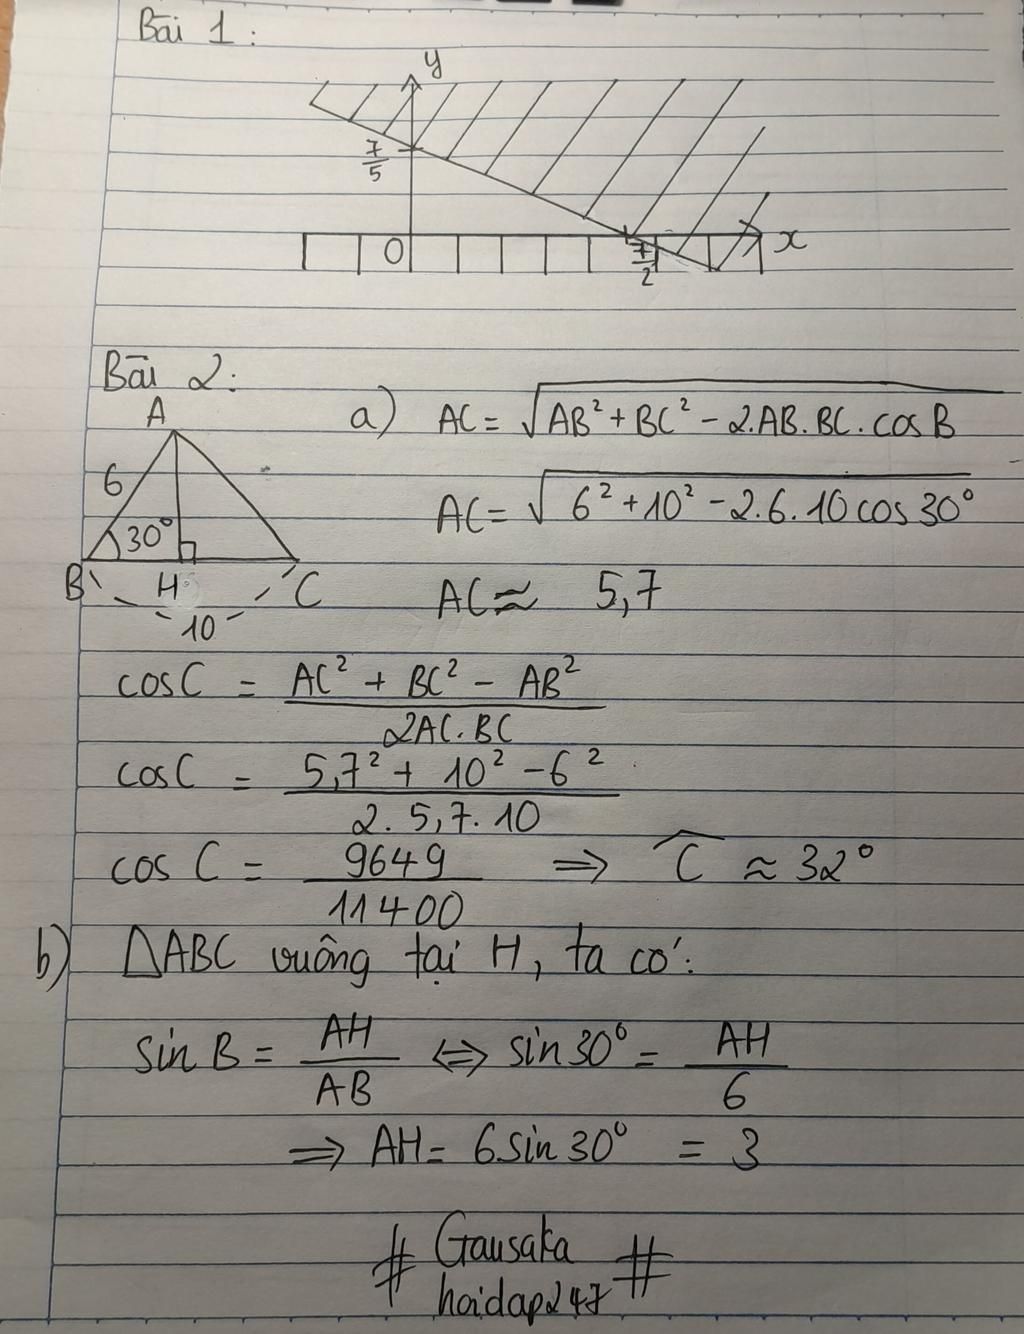 Bài 1:
y
7/5
O
7/2
x
Bài 2:
A
6
30°
B H C
10
a) AC = √(AB² + BC² - 2.AB.BC.cosB)
AC = √(6² + 10² - 2.6.10cos30°)
AC ≈ 5,7
cosC = (AC² + BC² - AB²)/(2AC.BC)
cosC = (5,7² + 10² - 6²)/(2.5,7.10)
cos C = 9649/11400 ⇒ Ĉ ≈ 32°
b) ΔABC vuông tại H, ta có:
sin B = AH/AB ⇔ sin30° = AH/6
⇒ AH = 6.sin30° = 3
# Gausaka #
hoidap247